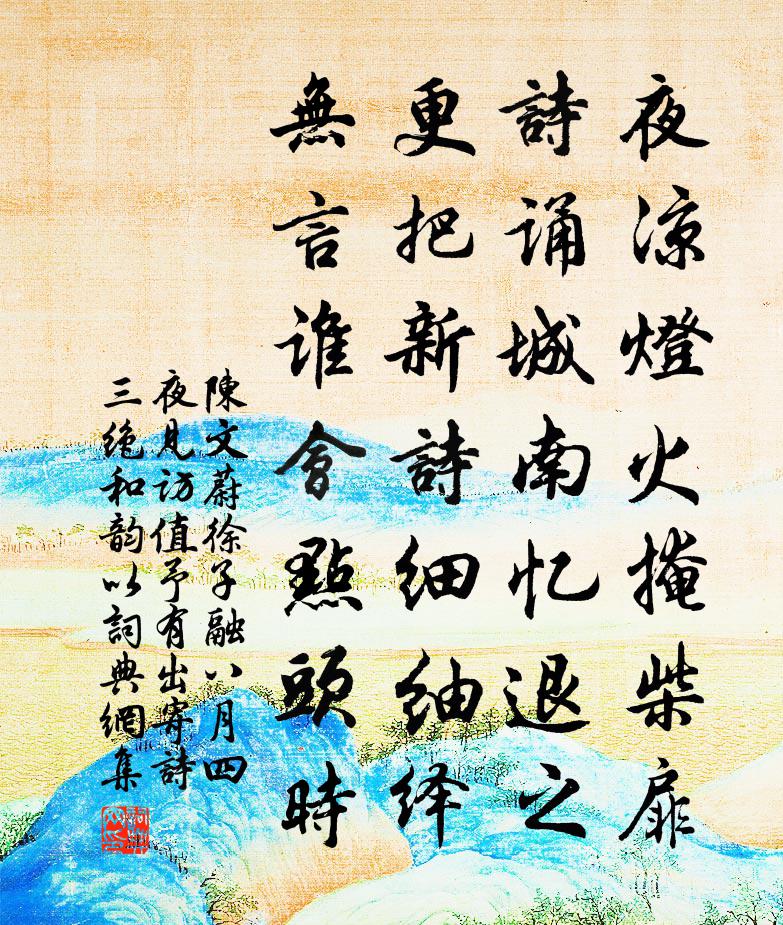 夜凉燈火掩柴扉
詩诵城南忆退之
更把新詩細紬绎
無言誰會點頭時
陳文蔚徐子融八月四
夜見访值予有出寄詩
三絶和韵以詞典網集